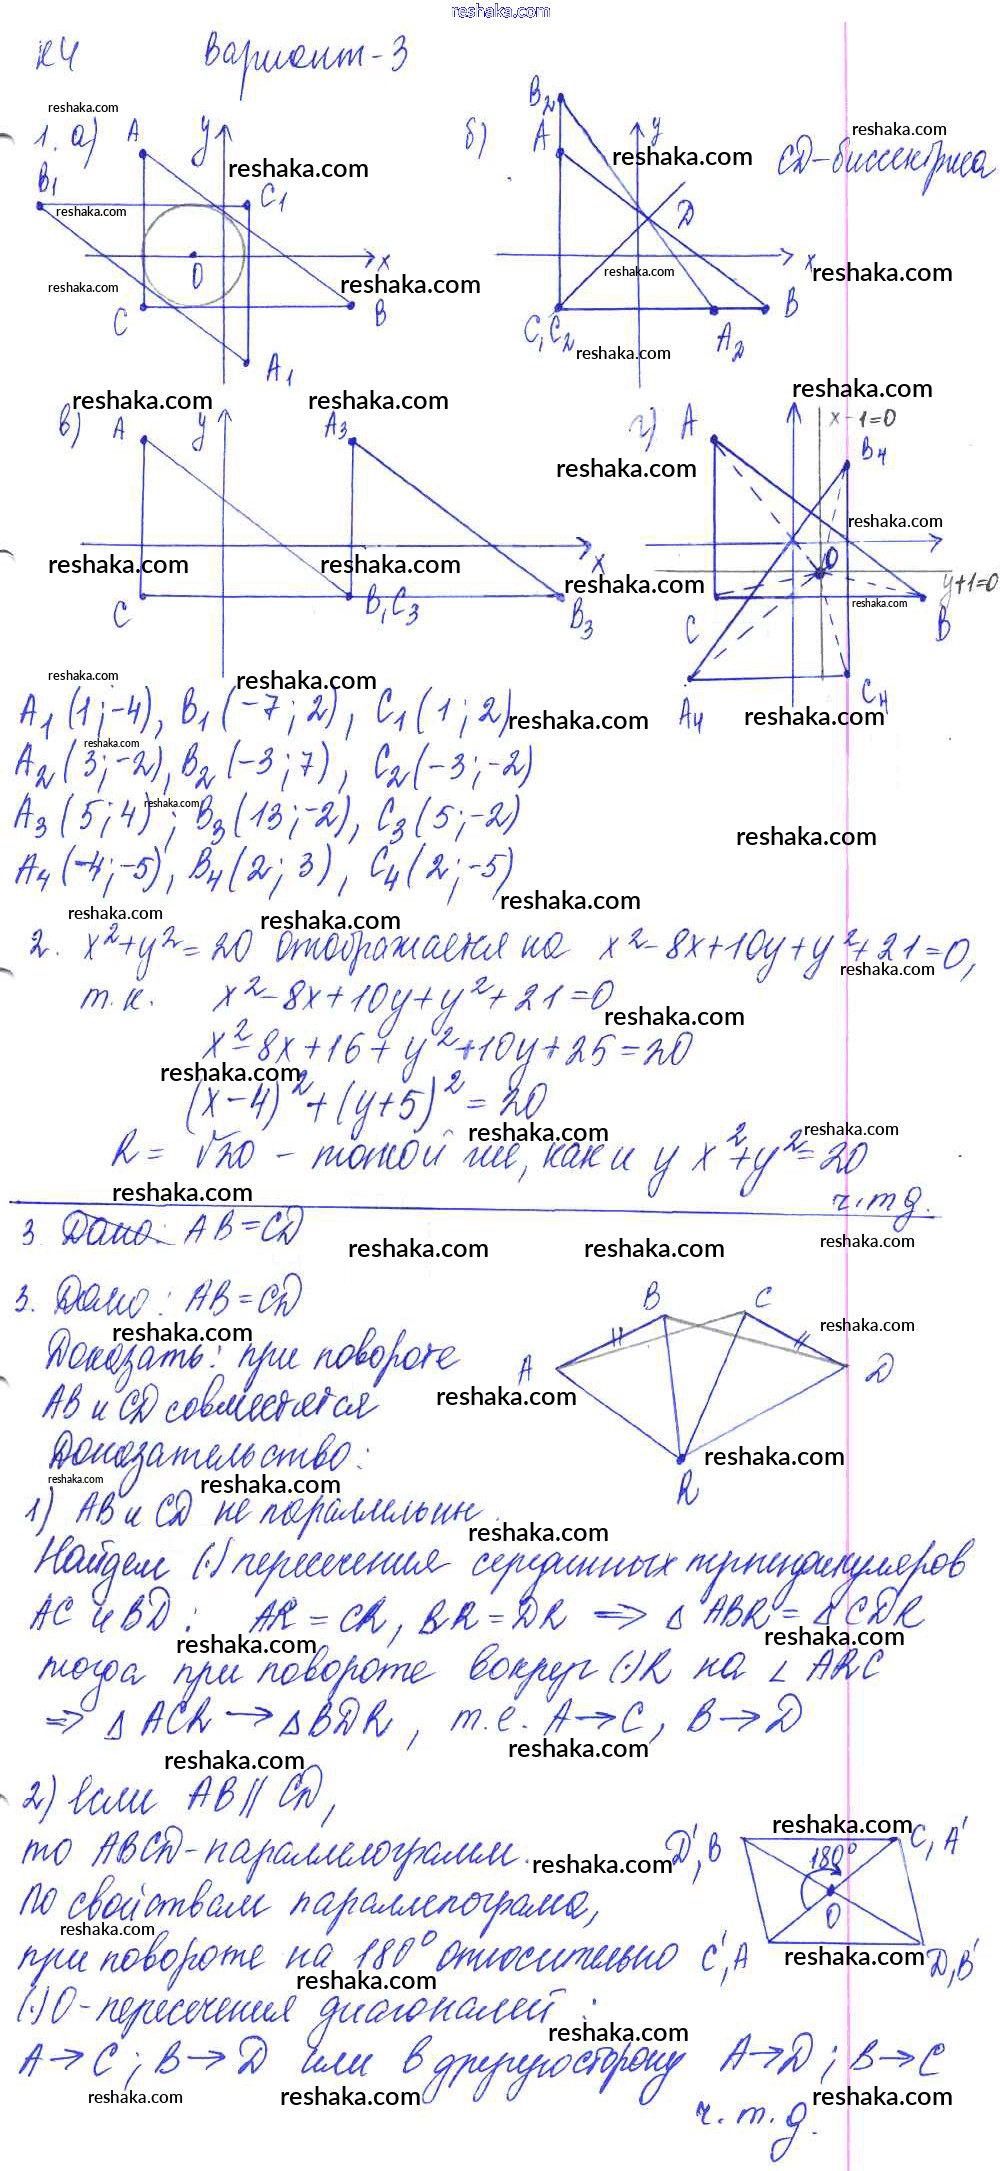 reshaka.com
К4 Вариант-3
1. а)
A
y
B1
C1
x
O
C
B
A1
б)
B2
A
y
CD-биссектриса
D
x
C, C2
B
A2
в)
A
y
A3
x
C
B, C3
B3
г)
A
x-1=0
B4
O
y+1=0
C
B
A4
C4
A1 (1;-4), B1 (-7; 2), C1 (1; 2)
A2 (3;-2), B2 (-3; 7), C2 (-3;-2)
A3 (5; 4); B3 (13;-2), C3 (5;-2)
A4 (-4;-5), B4 (2; 3), C4 (2;-5)
2. x²+y²=20 отображается на x²-8x+10y+y²+21=0,
т.к. x²-8x+10y+y²+21=0
x²-8x+16+y²+10y+25=20
(x-4)²+(y+5)²=20
R = √20 - такой же, как и у x²+y²=20
ч.т.д.
3. Дано: AB=CD
3. Дано: AB=CD
Доказать: при повороте
AB и CD совместятся
Доказательство:
B
C
A
D
R
1) AB и CD не параллельны.
Найдем (·) пересечения серединных перпендикуляров
AC и BD: AR = CR, BR = DR ⇒ △ABR = △CDR
тогда при повороте вокруг (·)R на ∠ARC
⇒ △ACR → △BDR, т.е. A→C, B→D
2) Если AB || CD,
то ABCD-параллелограмм.
По свойствам параллелограма,
при повороте на 180° относительно
(·)O-пересечения диагоналей:
A→C; B→D или в другую сторону A→D; B→C
ч.т.д.
D', B
C, A'
180°
O
C', A
D, B'